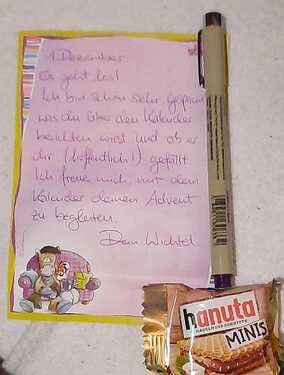 1. Dezember
Es geht los!
Ich bin schon sehr gespannt
was du über den Kalender
berichten wirst und ob er
dir (hoffentlich!) gefällt
Ich freue mich, mit dem
Kalender deinen Advent
zu begleiten.
Dein Wichtel
hanuta
HASELNUSS-SCHNITTE
MINIS